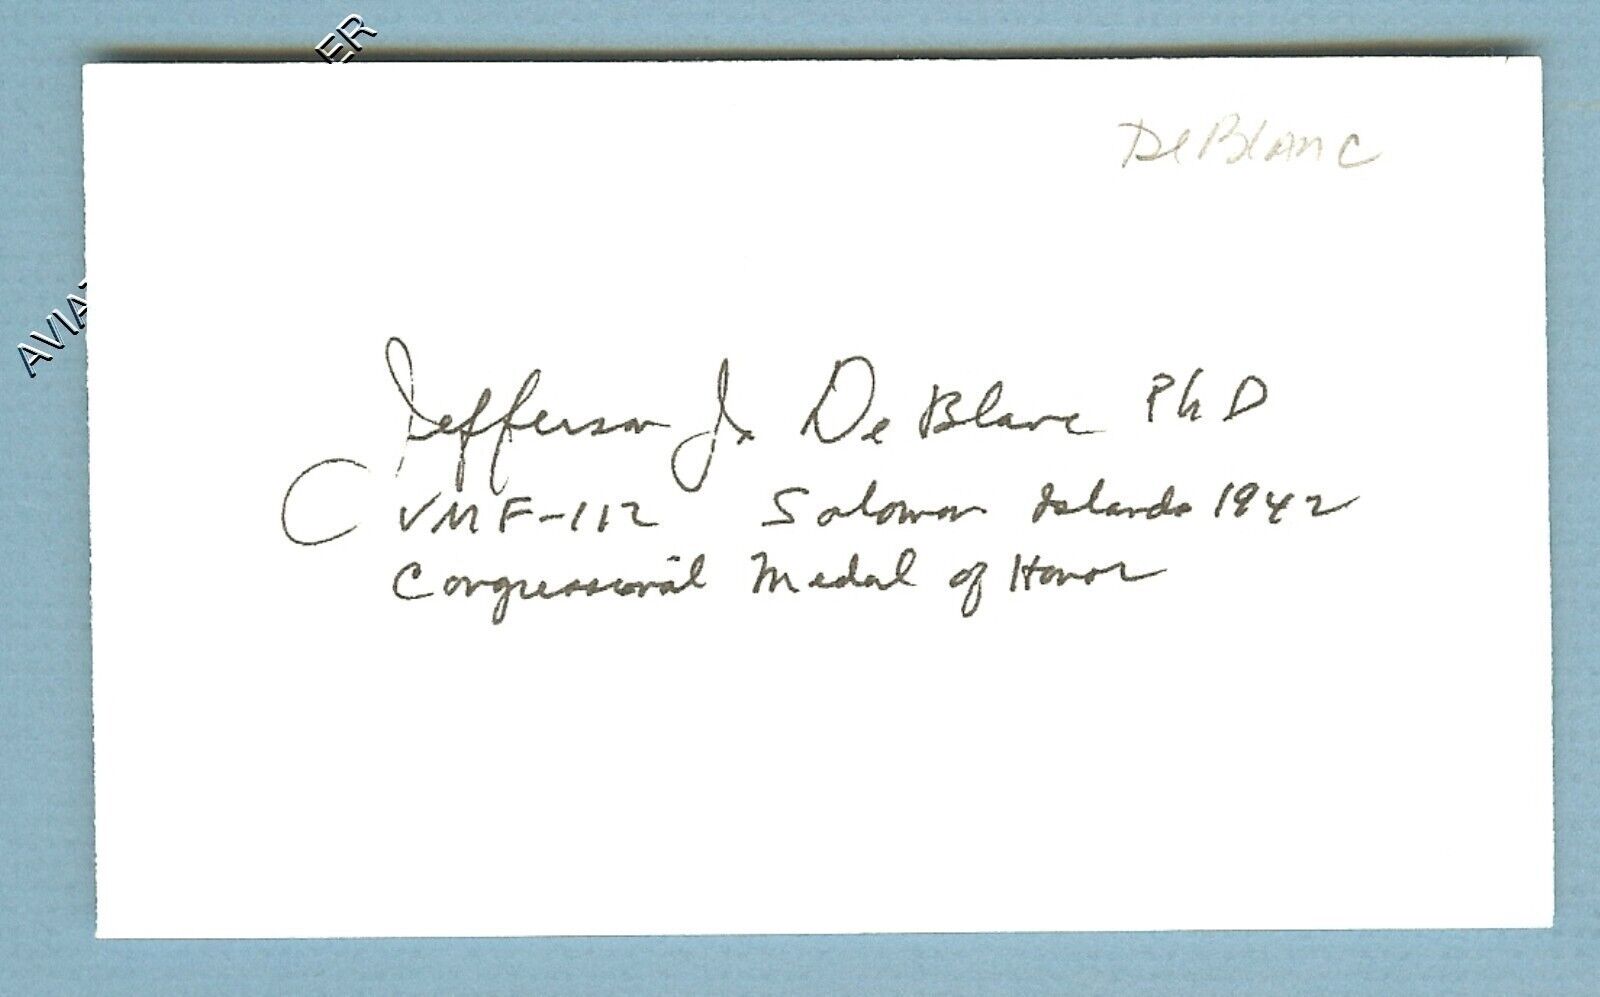 ER
DeBlanc
AVIAT
Jefferson J. DeBlanc PhD
VMF-112 Solomon Islands 1942
Congressional Medal of Honor